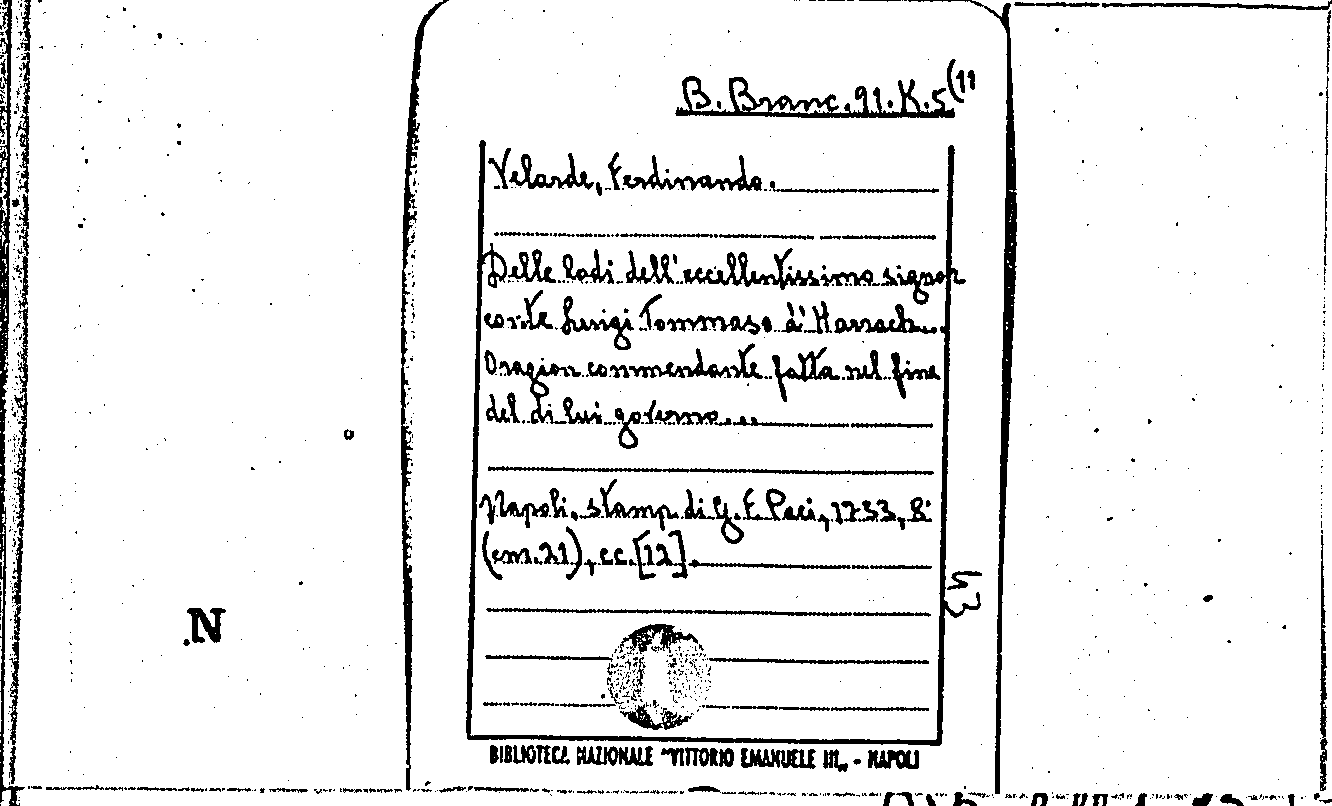 B. Branc. 91. K. 5 (11
Velarde, Ferdinando.
Delle lodi dell'eccellentissimo signor
conte Luigi Tommaso d'Harrach...
Orazion commendante fatta nel fine
del di lui governo...
Napoli, stamp. di G. F. Paci, 1733, 8°
(cm. 21), cc. [12].
43
N
BIBLIOTECA NAZIONALE "VITTORIO EMANUELE III„ - NAPOLI